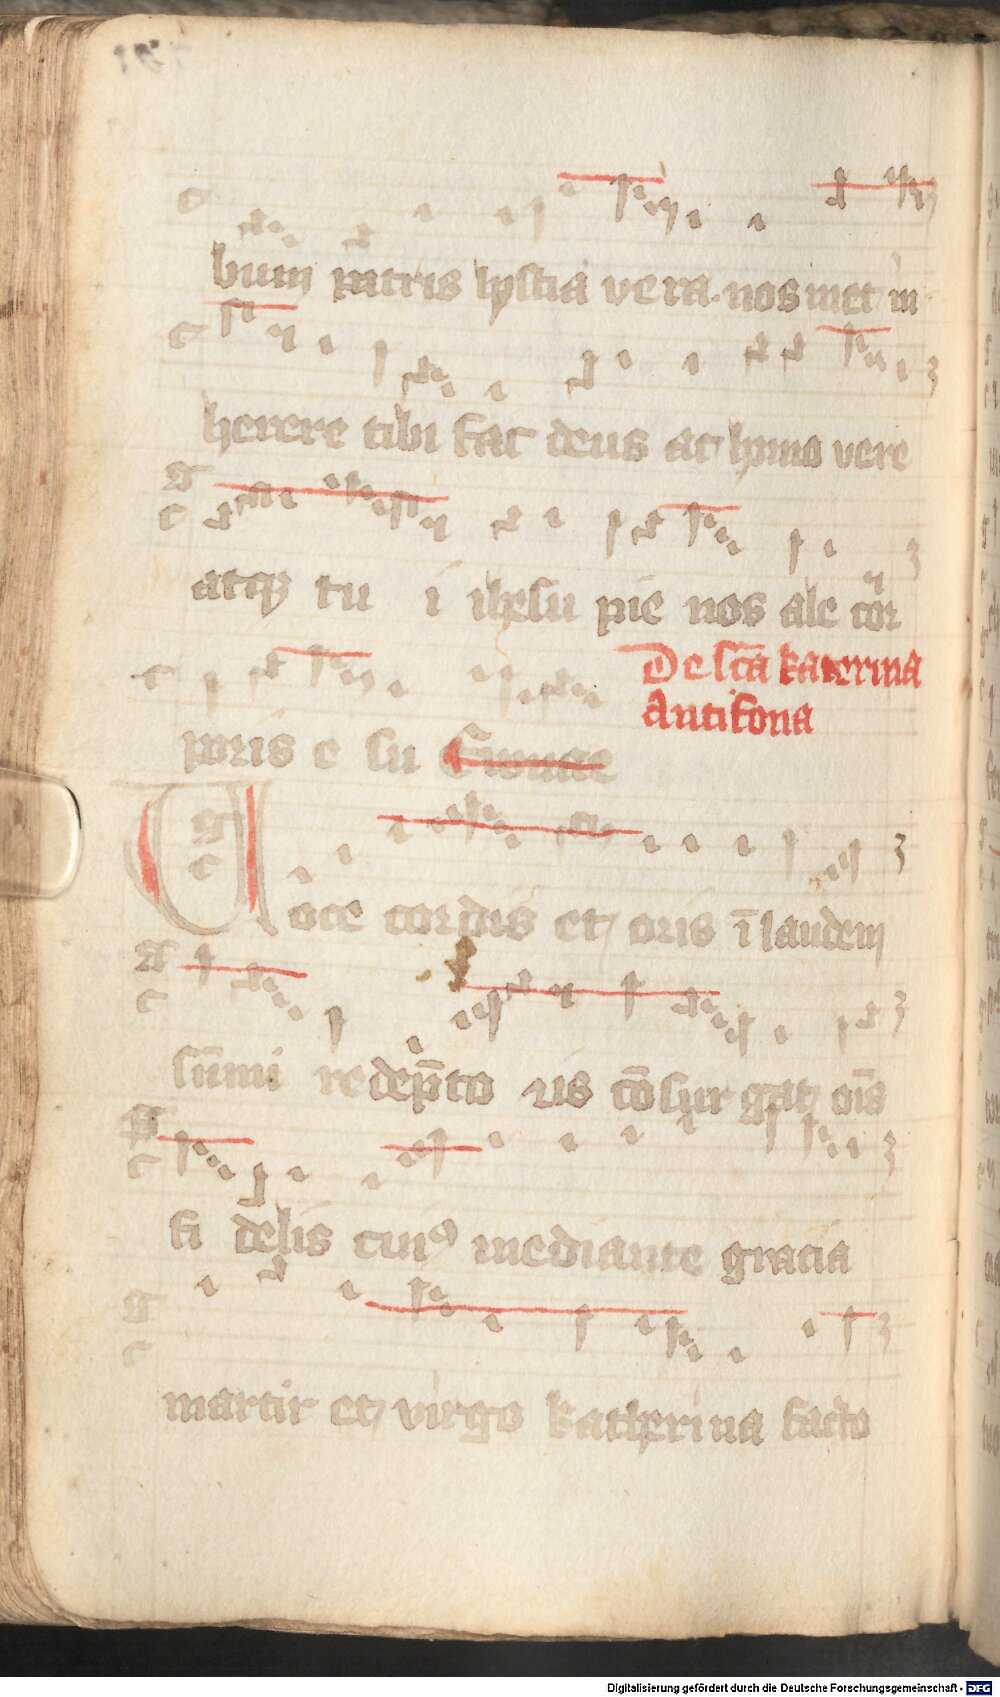 bum patris hostia vera nos met in
herere tibi fac deus at homo vere
atqꝫ tu i ihesu pie nos ale cor
De sc̄a katerina
Antifona
poris e su
Uoce cordis et oris ī laudem
sūmi redēpto ris cōsurgat oīs
fi delis cuiꝰ mediante gracia
martir et virgo katherina facto
Digitalisierung gefördert durch die Deutsche Forschungsgemeinschaft - DFG